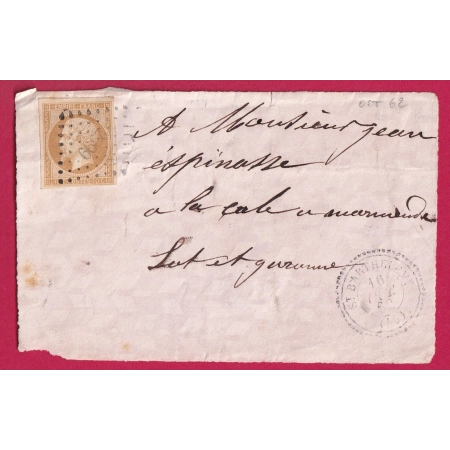 EMPIRE FRANC
OCT 62
A Monsieur jean
éspinasse
a la cale a marmende
Lot et garonne
ST BARTHEL
16